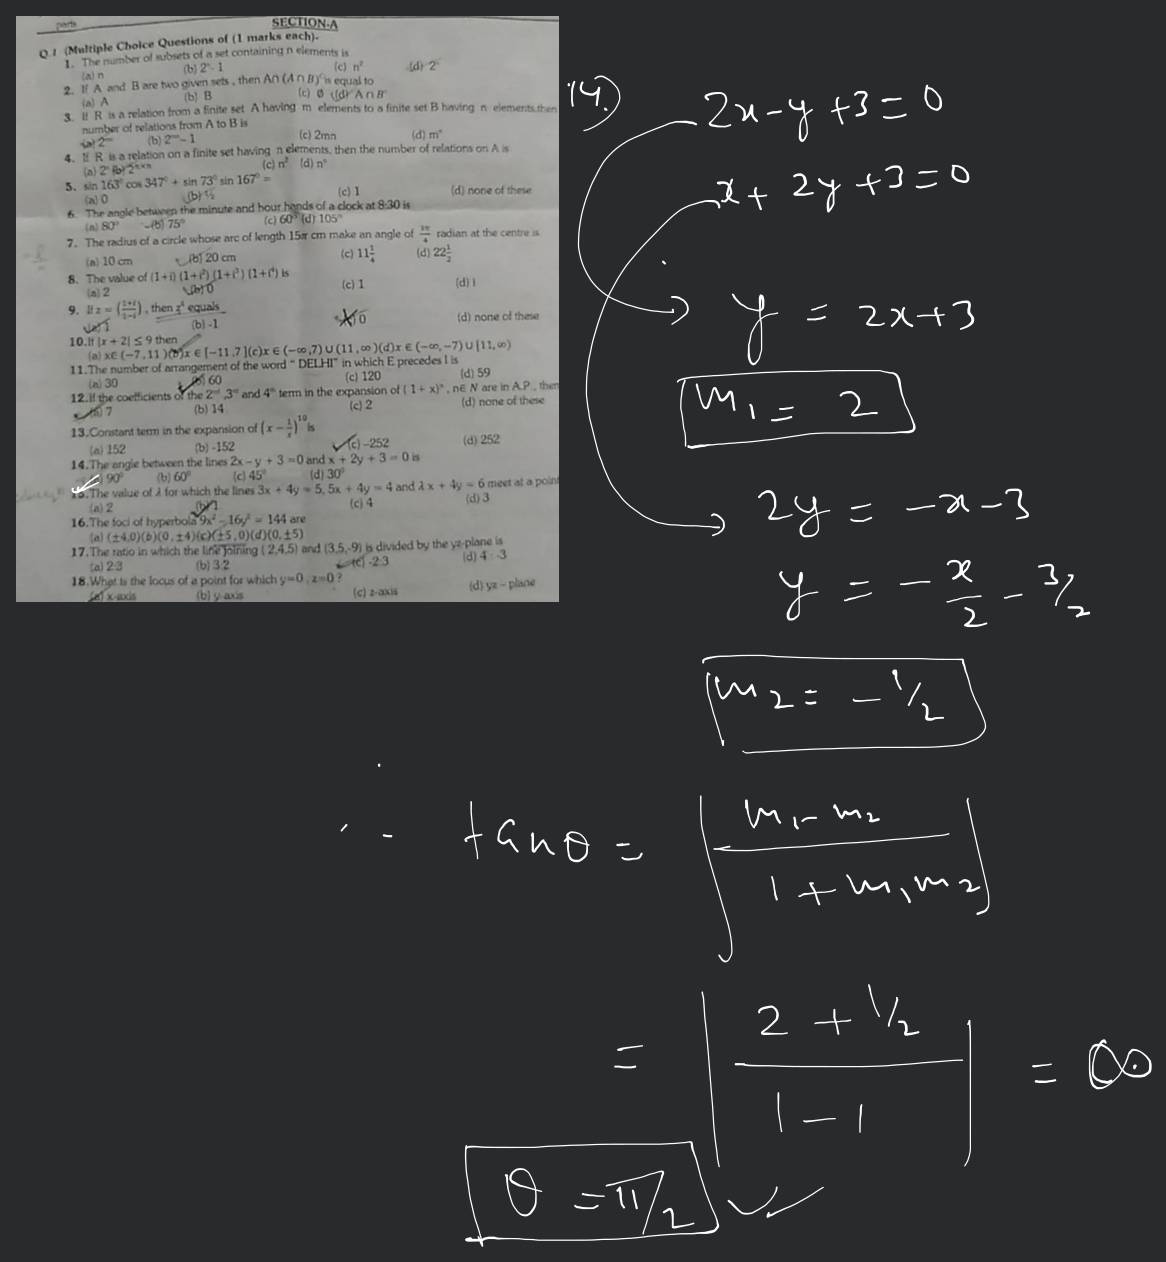 parts
SECTION-A
Q.1 (Multiple Choice Questions of (1 marks each)-
1. The number of subsets of a set containing n elements is
(a) n (b) 2ⁿ-1 (c) n² (d) 2ⁿ
2. If A and B are two given sets, then A∩(A∩B)' is equal to
(a) A (b) B (c) ∅ (d) A∩B'
3. If R is a relation from a finite set A having m elements to a finite set B having n elements, then
number of relations from A to B is
(a) 2ᵐⁿ (b) 2ᵐⁿ-1 (c) 2mn (d) mⁿ
4. If R is a relation on a finite set having n elements, then the number of relations on A is
(a) 2ⁿ (b) 2ⁿˣⁿ (c) n² (d) nⁿ
5. sin 163° cos 347° + sin 73° sin 167° =
(a) 0 (b) ½ (c) 1 (d) none of these
6. The angle between the minute and hour hands of a clock at 8:30 is
(a) 80° (b) 75° (c) 60° (d) 105°
7. The radius of a circle whose arc of length 15π cm make an angle of 3π/4 radian at the centre is
(a) 10 cm (b) 20 cm (c) 11¼ (d) 22½
8. The value of (1+i) (1+i²) (1+i³) (1+i⁴) is
(a) 2 (b) 0 (c) 1 (d) i
9. If z = (1+i/1-i), then z⁴ equals
(a) 1 (b) -1 0 (d) none of these
10. If |x + 2| ≤ 9 then
(a) x∈ (-7, 11) (b) x ∈ [-11,7] (c) x ∈ (-∞,7) ∪ (11, ∞) (d) x ∈ (-∞, -7) ∪ [11, ∞)
11. The number of arrangement of the word " DELHI" in which E precedes I is
(a) 30 (b) 60 (c) 120 (d) 59
12. If the coefficients of the 2ⁿᵈ, 3ʳᵈ and 4ᵗʰ term in the expansion of (1 + x)ⁿ, n∈ N are in A.P., then
(a) 7 (b) 14 (c) 2 (d) none of these
13. Constant term in the expansion of (x - 1/x)¹⁰ is
(a) 152 (b) -152 (c) -252 (d) 252
14. The angle between the lines 2x - y + 3 =0 and x + 2y + 3 = 0 is
90° (b) 60° (c) 45° (d) 30°
15. The value of λ for which the lines 3x + 4y = 5, 5x + 4y = 4 and λ x + 4y = 6 meet at a point
(a) 2 (b) 1 (c) 4 (d) 3
16. The foci of hyperbola 9x² - 16y² = 144 are
(a) (±4,0) (b) (0, ±4) (c) (±5, 0) (d) (0, ±5)
17. The ratio in which the line joining (2,4,5) and (3,5,-9) is divided by the yz-plane is
(a) 2:3 (b) 3:2 (c) -2:3 (d) 4 : -3
18. What is the locus of a point for which y=0, z=0 ?
(a) x-axis (b) y-axis (c) z-axis (d) yz - plane
14.)
2x-y+3=0
x+2y+3=0
y = 2x+3
m₁ = 2
2y = -x-3
y = -x/2 - 3/2
m₂ = -1/2
∴ tanθ = |m₁-m₂ / 1+m₁m₂|
= |2+1/2 / 1-1| = ∞
θ = π/2